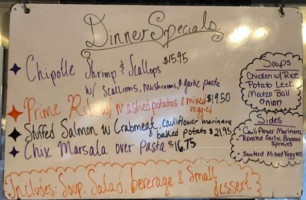 Dinner Specials
Chipotle Shrimp & Scallops $15.95
w/ Scallions, mushrooms, & garlic pasta
Prime Rib w/ mashed potatoes & mixed veggies $19.50
Stuffed Salmon w Crabmeat, cauliflower marinara
& baked potato $21.95
Chix Marsala over Pasta $16.75
Includes: Soup, Salad, beverage & Small
dessert
Soups
Chicken w/ Rice
Potato Leek
Matzo Ball
Onion
Sides
Cauliflower Marinara
Roasted Garlic Brussel
Sprouts
Sauteed Mixed Veggies